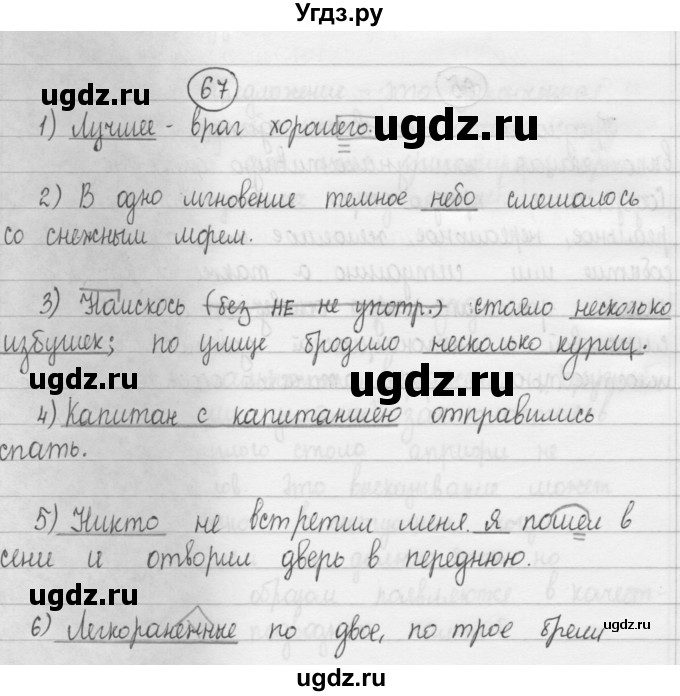 Угдз.ру
67
ugdz.ru
1) Лучшее - враг хорошего.
ugdz.ru
2) В одно мгновение темное небо смешалось
со снежным морем.
3) Наискось (без НЕ не употр.) стояло несколько
избушек; по улице бродило несколько куриц.
ugdz.ru
ugdz.ru
4) Капитан с капитаншею отправились
спать.
5) Никто не встретил меня. Я пошел в
сени и отворил дверь в переднюю.
ugdz.ru
ugdz.ru
6) Легкораненные по двое, по трое брели
ugdz.ru